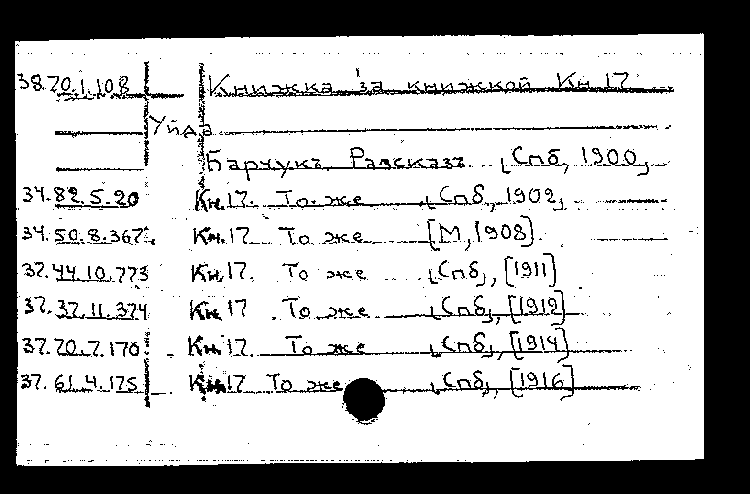 38.70.1.108 Книжка за книжкой Кн 17
Уйда
Барчукъ. Разсказъ. [Спб, 1900,
34.82.5.20 Кн.17. То же [Спб, 1902,
34.50.8.367 Кн.17 То же [М, 1908]
37.44.10.773 Кн.17. То же [Спб], [1911]
37.37.11.374 Кн.17 То же [Спб], [1912]
37.70.7.170 Кн.17 То же [Спб], [1914]
37.61.4.175 Кн17 То же [Спб], [1916]